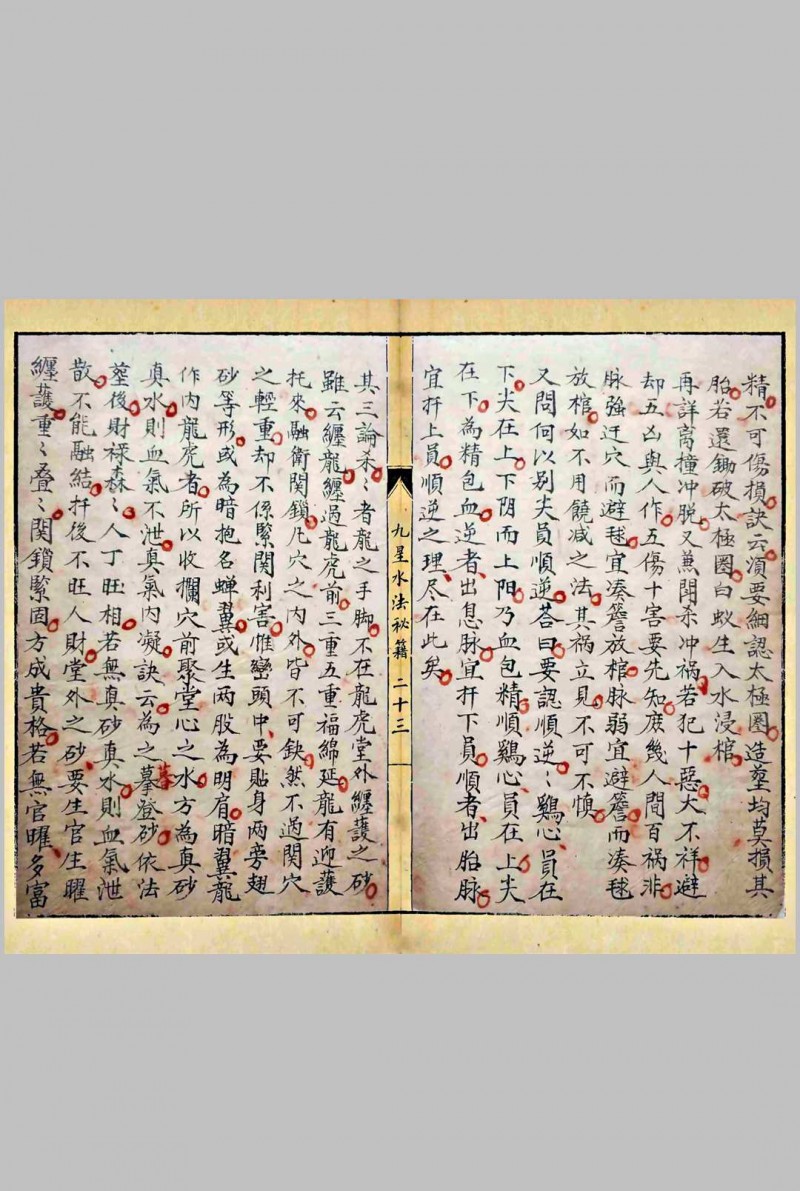 精不可傷損訣云湏要細認太極圈造塟均莫損其
胎若還鋤破太極圈白蚁生入水浸棺
再詳离撞冲脱又兼閗杀冲祸若犯十惡大不祥避
却五凶與人作五傷十害要先知庶幾人間百祸非
脉強迁穴而避毬宜凑簷放棺脉弱宜避簷而凑毬
放棺如不用饒减之法其祸立見不可不慎
又問何以别尖員順逆荅曰要認順逆〻鷄心員在
下尖在上下阴而上阳乃血包精順鷄心員在上尖
在下為精包血逆者出息脉宜扦下員順者出胎脉
宜扦上員順逆之理尽在此矣
九星水法秘籍 二十三
其三論杀〻者龍之手脚不在龍虎堂外纒護之砂
雖云纒龍纒過龍虎前三重五重福綿延龍有迎護
托來融衛関鎖凢穴之内外皆不可缺然不過関穴
之輕重却不係緊関利害惟巒頭中要貼身两旁翅
砂等形或為暗抱名蝉翼或生两股為明肩暗翼龍
作内龍虎者所以收攔穴前聚堂心之水方為真砂
真水則血氣不泄真氣内凝訣云為之摹登砂依法
暮
塟後財禄森〻人丁旺相若無真砂真水則血氣泄
散不能融結扦後不旺人財堂外之砂要生官生曜
纒護重〻叠〻関鎖緊固方成貴格若無官曜多富